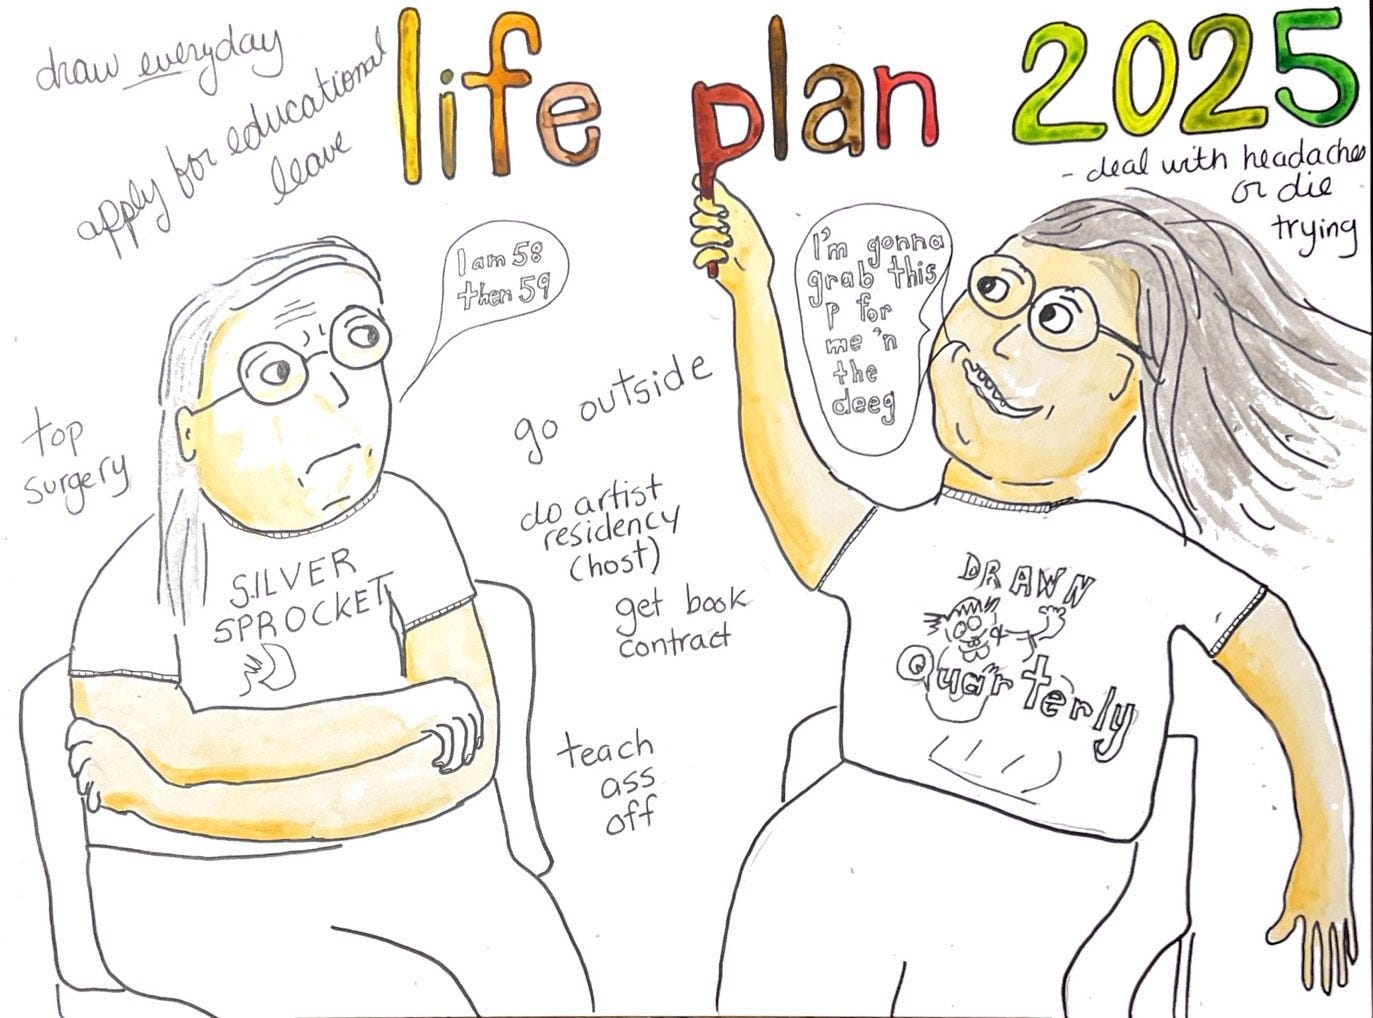 life plan 2025
draw everyday
apply for educational
leave
- deal with headaches
or die
trying
I am 58
then 59
I'm gonna
grab this
p for
me 'n
the
deeg
top
surgery
go outside
do artist
residency
(host)
get book
contract
teach
ass
off
SILVER
SPROCKET
DRAWN
Quarterly